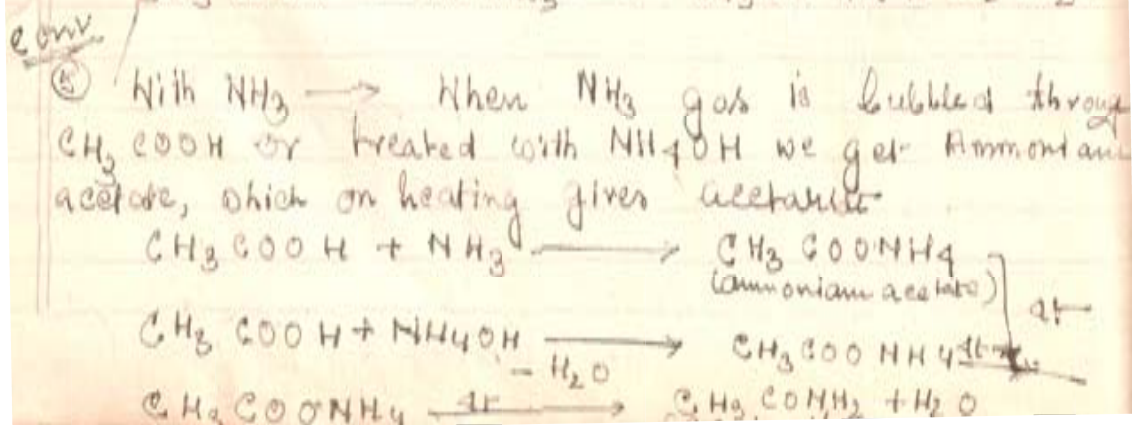 conv
⑤ With NH₃ → When NH₃ gas is bubbled throug
CH₃COOH or treated with NH₄OH we get Ammonium
acetate, which on heating gives
CH₃COOH + NH₃ → CH₃COONH₄
(ammonium acetate)
CH₃COOH + NH₄OH → CH₃COONH₄
- H₂O
CH₃COONH₄ → CH₃CONH₂ + H₂O